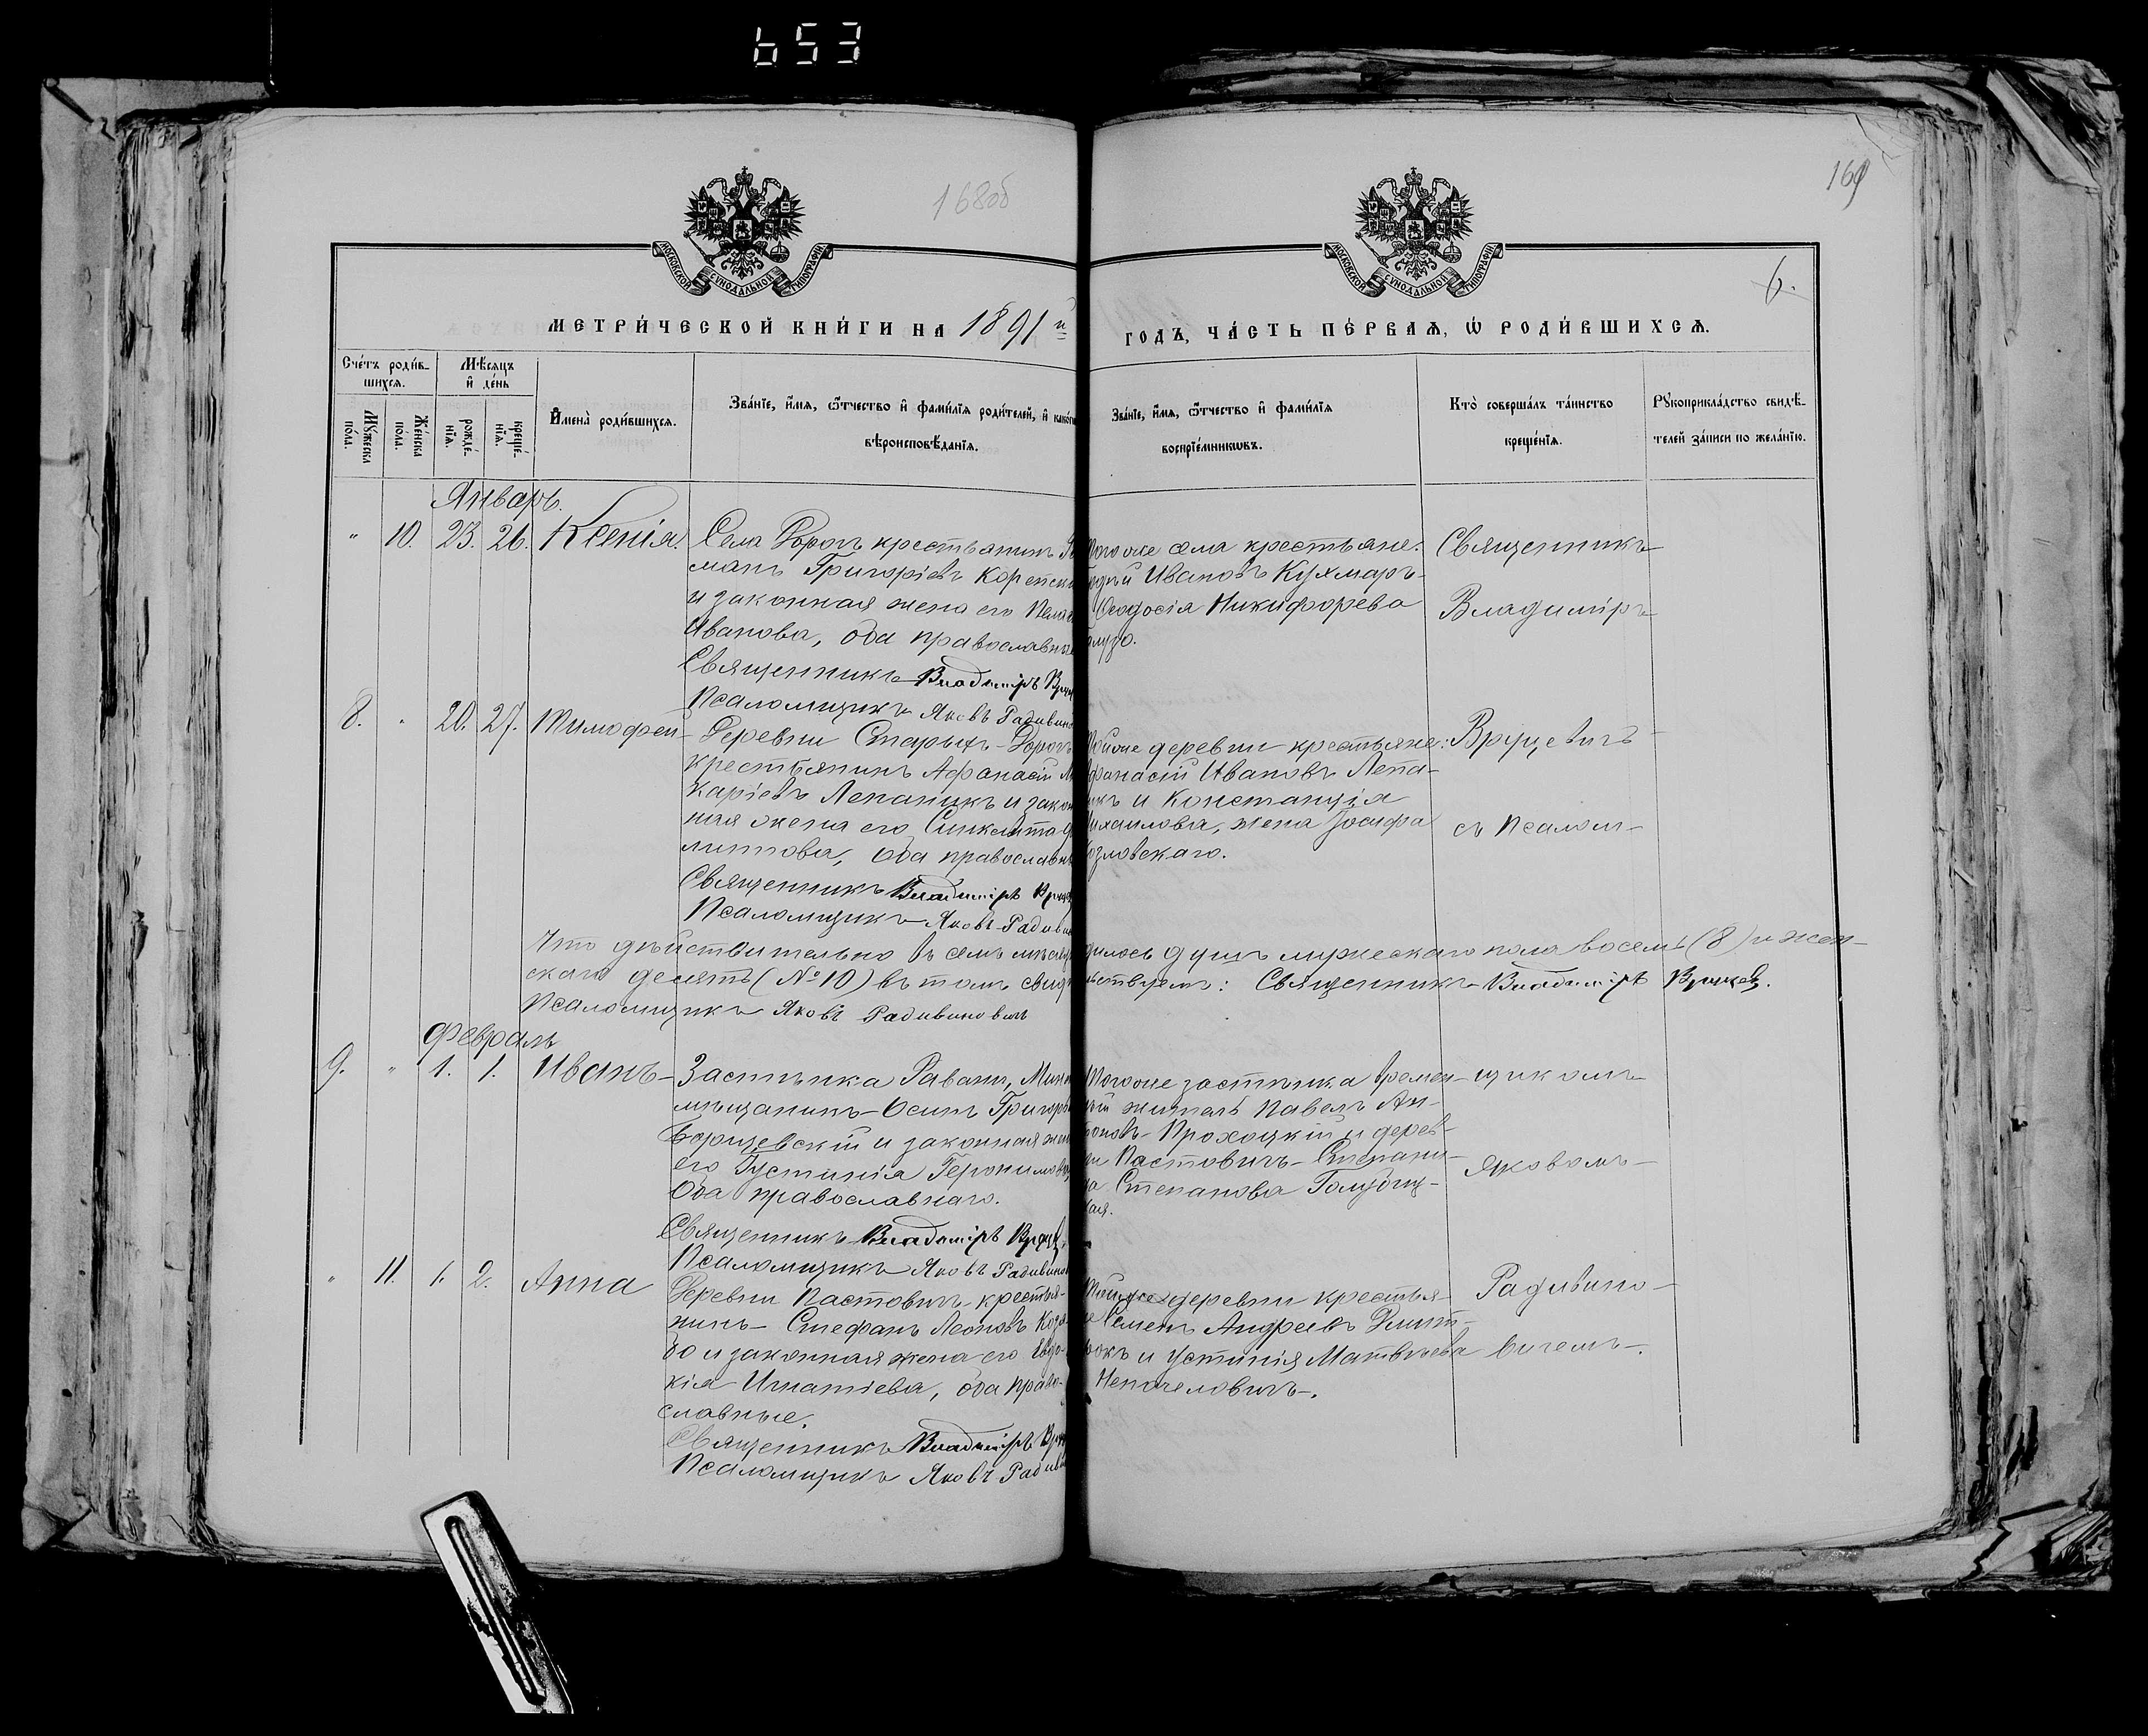 653
168об
169
6.
МОСКОВСКОЙ СУНОДАЛЬНОЙ ТИПОГРАФІИ
МОСКОВСКОЙ СУНОДАЛЬНОЙ ТИПОГРАФІИ
МЕТРИ́ЧЕСКОЙ КНИ́ГИ НА 1891 й
ГОДЪ, ЧА́СТЬ ПЕ́РВАЯ, Ѡ РОДИ́ВШИХСЯ.
Сче́тъ роди́в-
шихся.
Му́жеска
по́ла.
Же́нска
по́ла.
Мѣсяцъ
и де́нь
рожде́-
нїя.
креще́-
нїя.
Имена̀ роди́вшихся.
Зва́нїе, и́мя, ѻ́тчество и фами́лїя роди́телей, и како́го
вѣроисповѣ́данїя.
Зва́нїе, и́мя, ѻ́тчество и фами́лїя
воспрїе́мниковъ.
Кто̀ соверша́лъ та́инство
креще́нїя.
Рукоприкла́дство свидѣ́-
телей за́писи по жела́нїю.
Январь.
" 10. 23. 26. Ксенія.
Села Дорогъ крестьянинъ
манъ Григоріевъ
и законная жена его
Иванова, оба православные
Священникъ Владиміръ
Псаломщикъ Яковъ Радивино
тогоже села крестьяне:
Ивановъ Кухмаръ
Ѳеодосія Никифорева
Священникъ
Владиміръ
8. " 20. 27. Тимофей
Деревни Старыхъ-Дорогъ
крестьянинъ Афанасій Ма
каріевъ Лепаникъ и закон
ная жена его
литова, оба православн
Священникъ Владиміръ
Псаломщикъ Яковъ Радивин
Тойже деревни крестьяне:
фанасій Ивановъ Лепа-
икъ и Констанція
ихаилова, жена Іосифа
озловскаго.
Вруцевичъ
съ Псалом-
Что дѣйствительно въ семъ мѣсяцѣ
дилось душъ мужескаго пола восемь (8) и жен-
скаго десять (№ 10) въ томъ свидѣ
ельствуемъ: Священникъ Владиміръ Вруцев.
Псаломщикъ Яковъ Радивиновичъ
Февраль
9. " 1. 1. Иванъ
Застѣнка Равани, Минс
мѣщанинъ Осипъ Григорьев
Борщевскій и законная жен
его Іустинія Іеронимова,
Оба православнаго.
Священникъ Владиміръ Вруцев
Псаломщикъ Яковъ Радивино
Тогоже застѣнка времен-
ный житель Павелъ Ан-
тоновъ Прохоцкій и дерев-
ни Пастовичъ
Степанова Голубиц-
кая.
щикомъ
Яковомъ
" 11. 1. 2. Анна
Деревни Пастовичъ крестья-
нинъ Стефанъ Леоновъ Коза-
бо и законная жена его Евдо-
кія Игнатіева, оба право-
славные.
Священникъ Владиміръ
Псаломщикъ Яковъ Радиви
Тойже деревни крестья-
не Семенъ Андреевъ Дмит-
рокъ и Устинія Матвѣева
Непочеловичъ.
Радивино-
вичемъ.